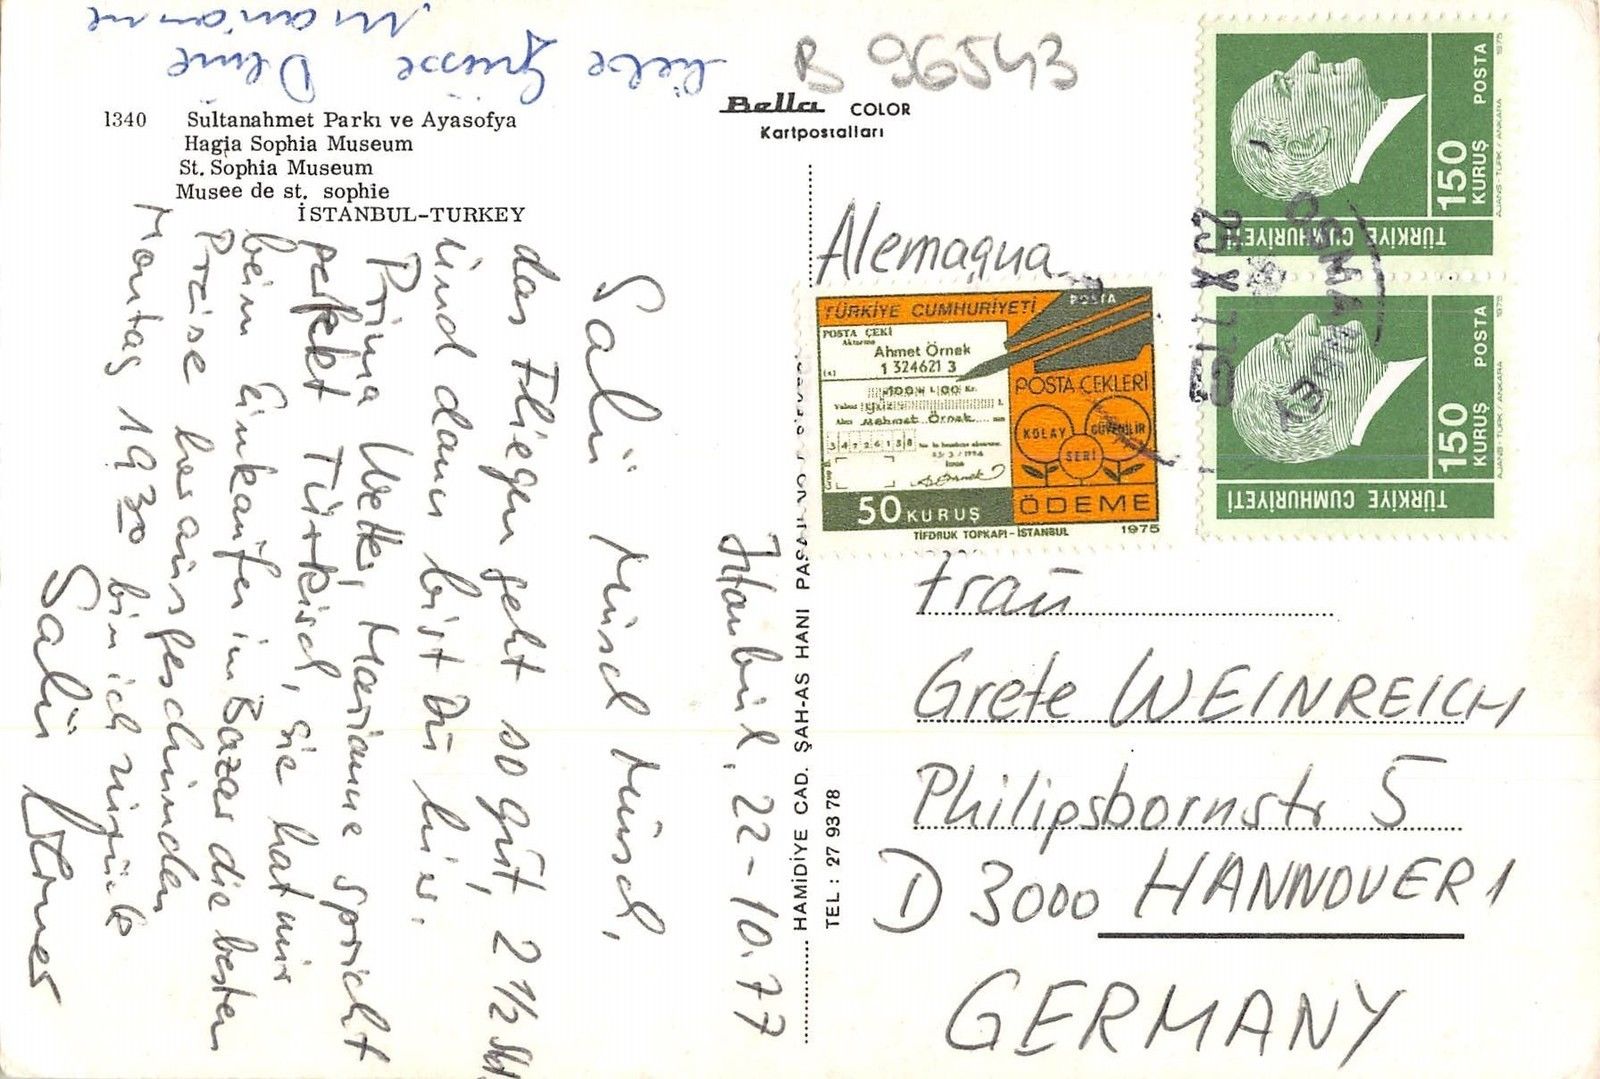 Liebe Grüsse Deine
Marianne
B 96543
1340 Sultanahmet Parkı ve Ayasofya
Hagia Sophia Museum
St. Sophia Museum
Musee de st. sophie
İSTANBUL-TURKEY
Bella COLOR
Kartpostalları
Istanbul, 22-10.77
Salü Müsch Müsch,
das Fliegen geht so gut, 2 1/2 Std.
und dann bist Du hier.
Prima Wetter, Marianne spricht
perfekt Türkisch, sie hat mir
beim Einkaufen im Bazar die besten
Preise herausgeschunden
Montag 19 30 bin ich zurück
Salü
HAMİDİYE CAD. ŞAH-AS HANI
TEL : 27 93 78
Alemagna
Frau
Grete WEINREICH
Philipsbornstr 5
D 3000 HANNOVER 1
GERMANY
TÜRKİYE CUMHURİYETİ
POSTA
POSTA ÇEKİ
Ahmet Örnek
1 324621 3
Mehmet Örnek
3 4 7 2 6 1 5 8
POSTA ÇEKLERİ
KOLAY
GÜVENİLİR
SERİ
ÖDEME
50 KURUŞ
TİFDRUK TOPKAPI-İSTANBUL 1975
TÜRKİYE CUMHURİYETİ
150 KURUŞ
POSTA
AJANS-TÜRK / ANKARA 1975
TÜRKİYE CUMHURİYETİ
150 KURUŞ
POSTA
AJANS-TÜRK / ANKARA 1975